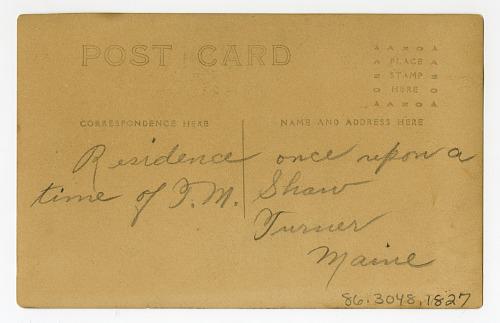 POST CARD
AAZOA
PLACE
STAMP
HERE
AAZOA
CORRESPONDENCE HERE
NAME AND ADDRESS HERE
Residence once upon a
time of T.M. Shaw
Turner
Maine
86.3048.1827